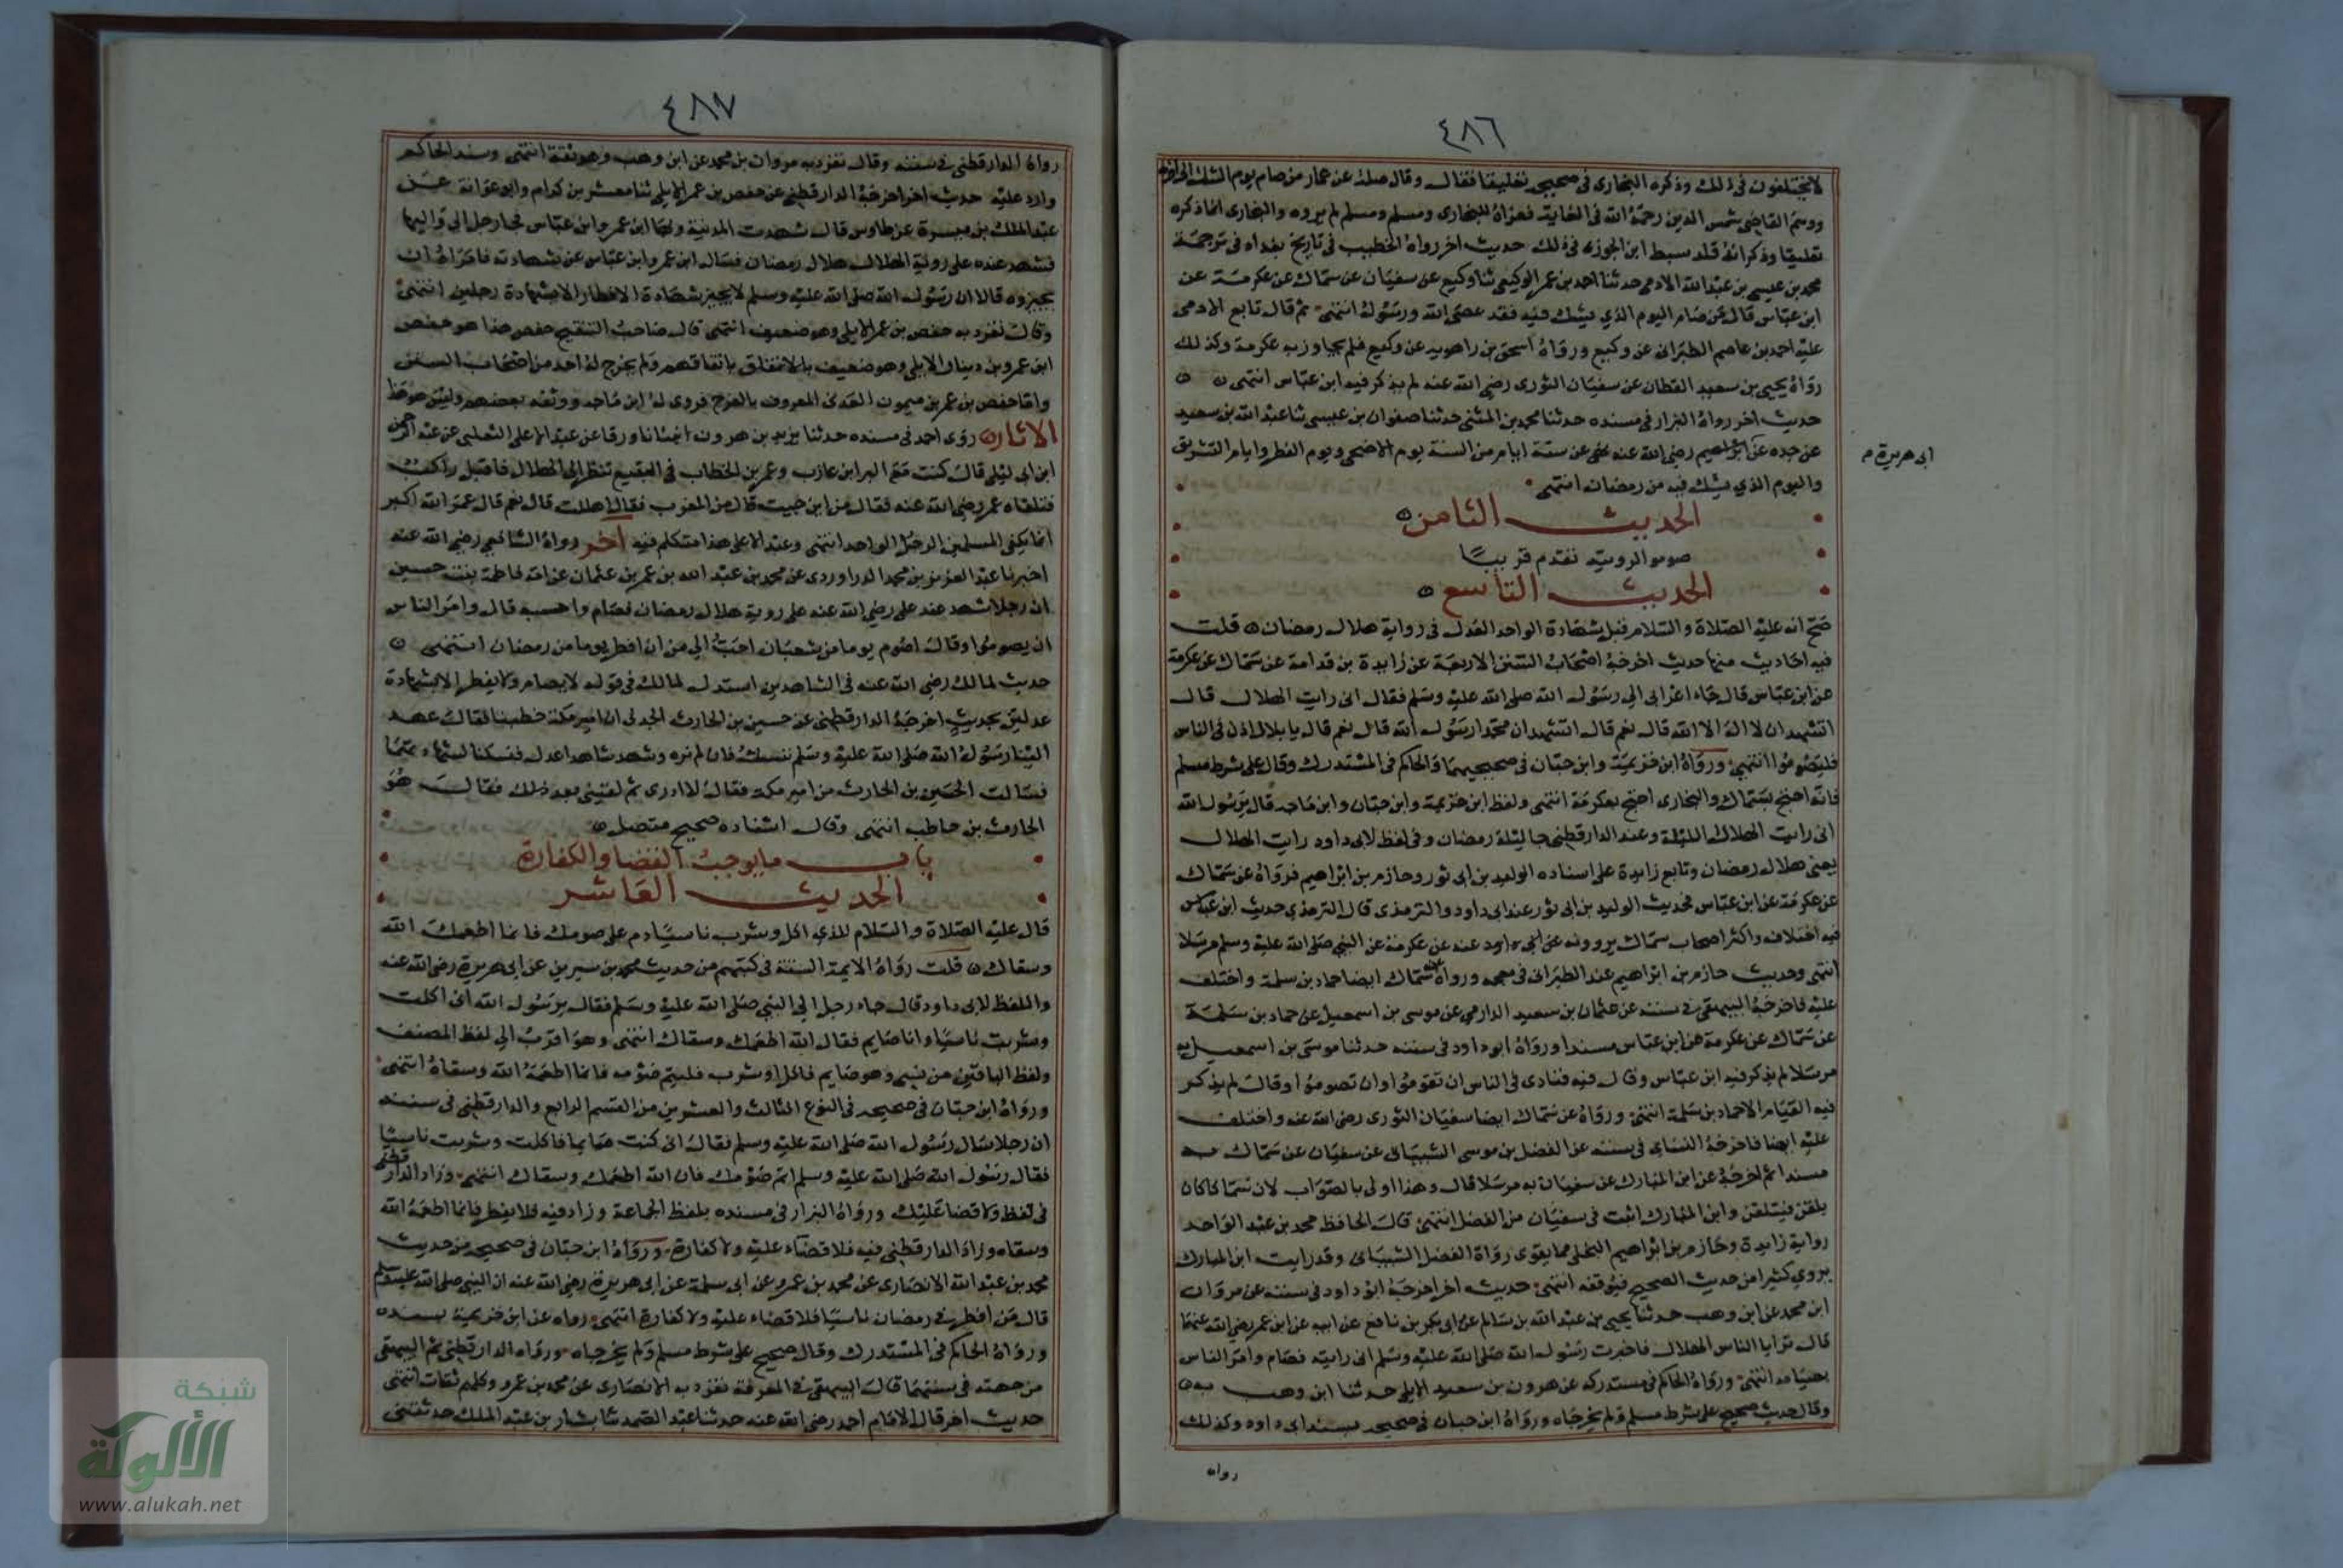 ٤٨٦
لا يختلفون في ذلك وذكره البخارى فى صحيحه تعليقا فقال وقال صلة عن عمار من صام يوم الشك الى اخره
ووهم القاضى شمس الدين رحمه الله فى الغاية فعزاه للبخارى ومسلم ومسلم لم يروه والبخارى انما ذكره
تعليقا وذكر انه قلد سبط ابن الجوزى فى ذلك حديث اخر رواه الخطيب فى تاريخ بغداد فى ترجمة
محمد بن عيسى بن عبد الله الادمى حدثنا احمد بن عمر الوكيعى ثنا وكيع عن سفيان عن سماك عن عكرمة عن
ابن عباس قال من صام اليوم الذي يشك فيه فقد عصى الله ورسوله انتهى ثم قال تابع الادمى
عليه احمد بن عاصم الطبرانى عن وكيع ورواه اسحق بن راهويه عن وكيع فلم يجاوز به عكرمة وكذلك
رواه يحيى بن سعيد القطان عن سفيان الثورى رضى الله عنه لم يذكر فيه ابن عباس انتهى
حديث اخر رواه البزار فى مسنده حدثنا محمد بن المثنى حدثنا صفوان بن عيسى ثنا عبد الله بن سعيد
عن جده عن ابرٰهيم رضى الله عنه نهى عن ستة ايام من السنة يوم الاضحى ويوم الفطر وايام التشريق
ابى هريرة م
واليوم الذي يشك فيه من رمضان انتهى
الحديث الثامن
صوموا لرويته تقدم قريبا
الحديث التاسع
صح انه عليه الصلاة والسلام قبل شهادة الواحد العدل فى رواية هلال رمضان قلت
فيه احاديث منها حديث اخرجه اصحاب السنن الاربعة عن زايدة بن قدامة عن سماك عن عكرمة
عن ابن عباس قال جاء اعرابى الى رسول الله صلى الله عليه وسلم فقال انى رايت الهلال قال
اتشهد ان لا اله الا الله قال نعم قال اتشهد ان محمدا رسول الله قال نعم قال يا بلال اذن فى الناس
فليصوموا انتهى ورواه ابن خزيمة وابن حبان فى صحيحيهما والحاكم فى المستدرك وقال على شرط مسلم
فانه احتج بسماك والبخارى احتج بعكرمة انتهى ولفظ ابن خزيمة وابن حبان وابن ماجه قال يرسول الله
انى رايت الهلال الليلة وعند الدارقطنى جا ليلة رمضان وفى لفظ لابى داود رايت الهلال
يعنى هلال رمضان وتابع زايدة على اسناده الوليد بن ابى ثور وحازم بن ابراهيم فرواه عن سماك
عن عكرمة عن ابن عباس فحديث الوليد بن ابى ثور عند ابى داود والترمذى قال الترمذى حديث ابن عباس
فيه اختلاف واكثر اصحاب سماك يروونه عن عكرمة عن النبى صلى الله عليه وسلم مرسلا
انتهى وحديث حازم بن ابراهيم عند الطبرانى فى معجمه ورواه عن سماك ايضا حماد بن سلمة واختلف
عليه فاخرجه البيهقى فى سننه عن عثمان بن سعيد الدارمي عن موسى بن اسمعيل عن حماد بن سلمة
عن سماك عن عكرمة عن ابن عباس مسندا ورواه ابو داود فى سننه حدثنا موسى بن اسمعيل به
مرسلا لم يذكر فيه ابن عباس وقال فيه فنادى فى الناس ان تقوموا وان تصوموا وقال لم يذكر
فيه القيام الا حماد بن سلمة انتهى ورواه عن سماك ايضا سفيان الثورى رضى الله عنه واختلف
عليه ايضا فاخرجه النساى فى سننه عن الفضل بن موسى الشيبانى عن سفيان عن سماك به
مسندا ثم اخرجه عن ابن المبارك عن سفيان به مرسلا قال وهذا اولى بالصواب لان سماكا كان
يلقن فيتلقن وابن المبارك اثبت فى سفيان من الفضل انتهى قال الحافظ محمد بن عبد الواحد
رواية زايدة وحازم بن ابراهيم البجلى مما يقوى رواة الفضل الشيبانى وقد رايت ابن المبارك
يروي كثيرا من حديث الصحيح فيوقفه انتهى حديث اخر اخرجه ابو داود فى سننه عن مروان
ابن محمد عن ابن وهب حدثنا يحيى بن عبد الله بن سالم عن ابى بكر بن نافع عن ابيه عن ابن عمر رضى الله عنهما
قال ترايا الناس الهلال فاخبرت رسول الله صلى الله عليه وسلم انى رايته فصام وامر الناس
بصيامه انتهى ورواه الحاكم فى مستدركه عن هرون بن سعيد الايلى حدثنا ابن وهب به
وقال حديث صحيح على شرط مسلم ولم يخرجاه ورواه ابن حبان فى صحيحه بسند ابى داود وكذلك
رواه
٤٨٧
رواه الدارقطنى فى سننه وقال تفرد به مروان بن محمد عن ابن وهب وهو ثقة انتهى وسند الحاكم
وارد عليه حديث اخر اخرجه الدارقطنى عن حفص بن عمر الايلى ثنا مسعر بن كدام وابو عوانة عن
عبد الملك بن ميسرة عن طاوس قال شهدت المدينة وبها ابن عمر وابن عباس فجا رجل الى واليها
فشهد عنده على روية الهلال هلال رمضان فسال ابن عمر وابن عباس عن شهادته فامراه ان
يجيزه قالا ان رسول الله صلى الله عليه وسلم لا يجيز شهادة الافطار الا بشهادة رجلين انتهى
وقال تفرد به حفص بن عمر الايلى وهو ضعيف انتهى قال صاحب التنقيح حفص هذا هو حفص
ابن عمر بن دينار الايلى وهو ضعيف باتفاقهم ولم يخرج له احد من اصحاب السنن
واما حفص بن عمر بن ميمون العدنى المعروف بالفرخ فروى له ابن ماجه ووثقه بعضهم وليس هو هذا
الاثار روى احمد فى مسنده حدثنا يزيد بن هرون انبانا ورقا عن عبد الاعلى الثعلبى عن عبد الرحمن
ابن ابى ليلى قال كنت مع البرا بن عازب وعمر بن الخطاب فى البقيع تنظر الى الهلال فاقبل راكب
فتلقاه عمر رضى الله عنه فقال من اين جيت قال من المغرب فقال اهللت قال نعم قال عمر الله اكبر
انما يكفى المسلمين الرجل الواحد انتهى وعبد الاعلى هذا متكلم فيه اخر رواه الشافعى رضى الله عنه
اخبرنا عبد العزيز بن محمد الدراوردى عن محمد بن عبد الله بن عمر بن عثمان عن امه فاطمة بنت حسين
ان رجلا شهد عند على رضى الله عنه على روية هلال رمضان فصام واحسبه قال وامر الناس
ان يصوموا وقال اصوم يوما من شعبان احب الى من ان افطر يوما من رمضان انتهى
حديث لمالك رضى الله عنه فى الشاهدين استدل لمالك فى قوله لا يصام ولا يفطر الا بشهادة
عدلين بحديث اخرجه الدارقطنى عن حسين بن الحارث الجدلى ان امير مكة خطبنا فقال عهد
الينا رسول الله صلى الله عليه وسلم ننسك فان لم نره وشهد شاهدا عدل فنسكنا بشهادتهما
فسالت الحسين بن الحارث من امير مكة فقال لا ادرى ثم لقينى بعد ذلك فقال هو
الحارث بن حاطب انتهى وقال اسناده صحيح متصل
باب ما يوجب القضا والكفارة
الحديث العاشر
قال عليه الصلاة والسلام للذي اكل وشرب ناسيا دم على صومك فانما اطعمك الله
وسقاك قلت رواه الايمة الستة فى كتبهم من حديث محمد بن سيرين عن ابى هريرة رضى الله عنه
واللفظ لابى داود قال جاء رجل الى النبى صلى الله عليه وسلم فقال يرسول الله انى اكلت
وشربت ناسيا وانا صايم فقال الله اطعمك وسقاك انتهى وهو اقرب الى لفظ المصنف
ولفظ الباقين من نسى وهو صايم فاكل او شرب فليتم صومه فانما اطعمه الله وسقاه انتهى
ورواه ابن حبان فى صحيحه فى النوع الثالث والعشرين من القسم الرابع والدارقطنى فى سننه
ان رجلا سال رسول الله صلى الله عليه وسلم فقال انى كنت صايما فاكلت وشربت ناسيا
فقال رسول الله صلى الله عليه وسلم اتم صومك فان الله اطعمك وسقاك انتهى وزاد الدارقطنى
فى لفظ ولا قضا عليك ورواه البزار فى مسنده بلفظ الجماعة وزاد فيه فلا يفطر فانما اطعمه الله
وسقاه وزاد الدارقطنى فيه فلا قضاء عليه ولا كفارة ورواه ابن حبان فى صحيحه من حديث
محمد بن عبد الله الانصارى عن محمد بن عمرو عن ابى سلمة عن ابى هريرة رضى الله عنه ان النبى صلى الله عليه وسلم
قال من افطر فى رمضان ناسيا فلا قضاء عليه ولا كفارة انتهى رواه عن ابن خزيمة بسنده
ورواه الحاكم فى المستدرك وقال صحيح على شرط مسلم ولم يخرجاه ورواه الدارقطنى ثم البيهقى
من جهته فى سننهما قال البيهقى فى المعرفة تفرد به الانصارى عن محمد بن عمرو وكلهم ثقات انتهى
حديث اخر قال الامام احمد رضى الله عنه حدثنا عبد الصمد ثنا بشار بن عبد الملك حدثتنى
شبكة
الألوكة
www.alukah.net